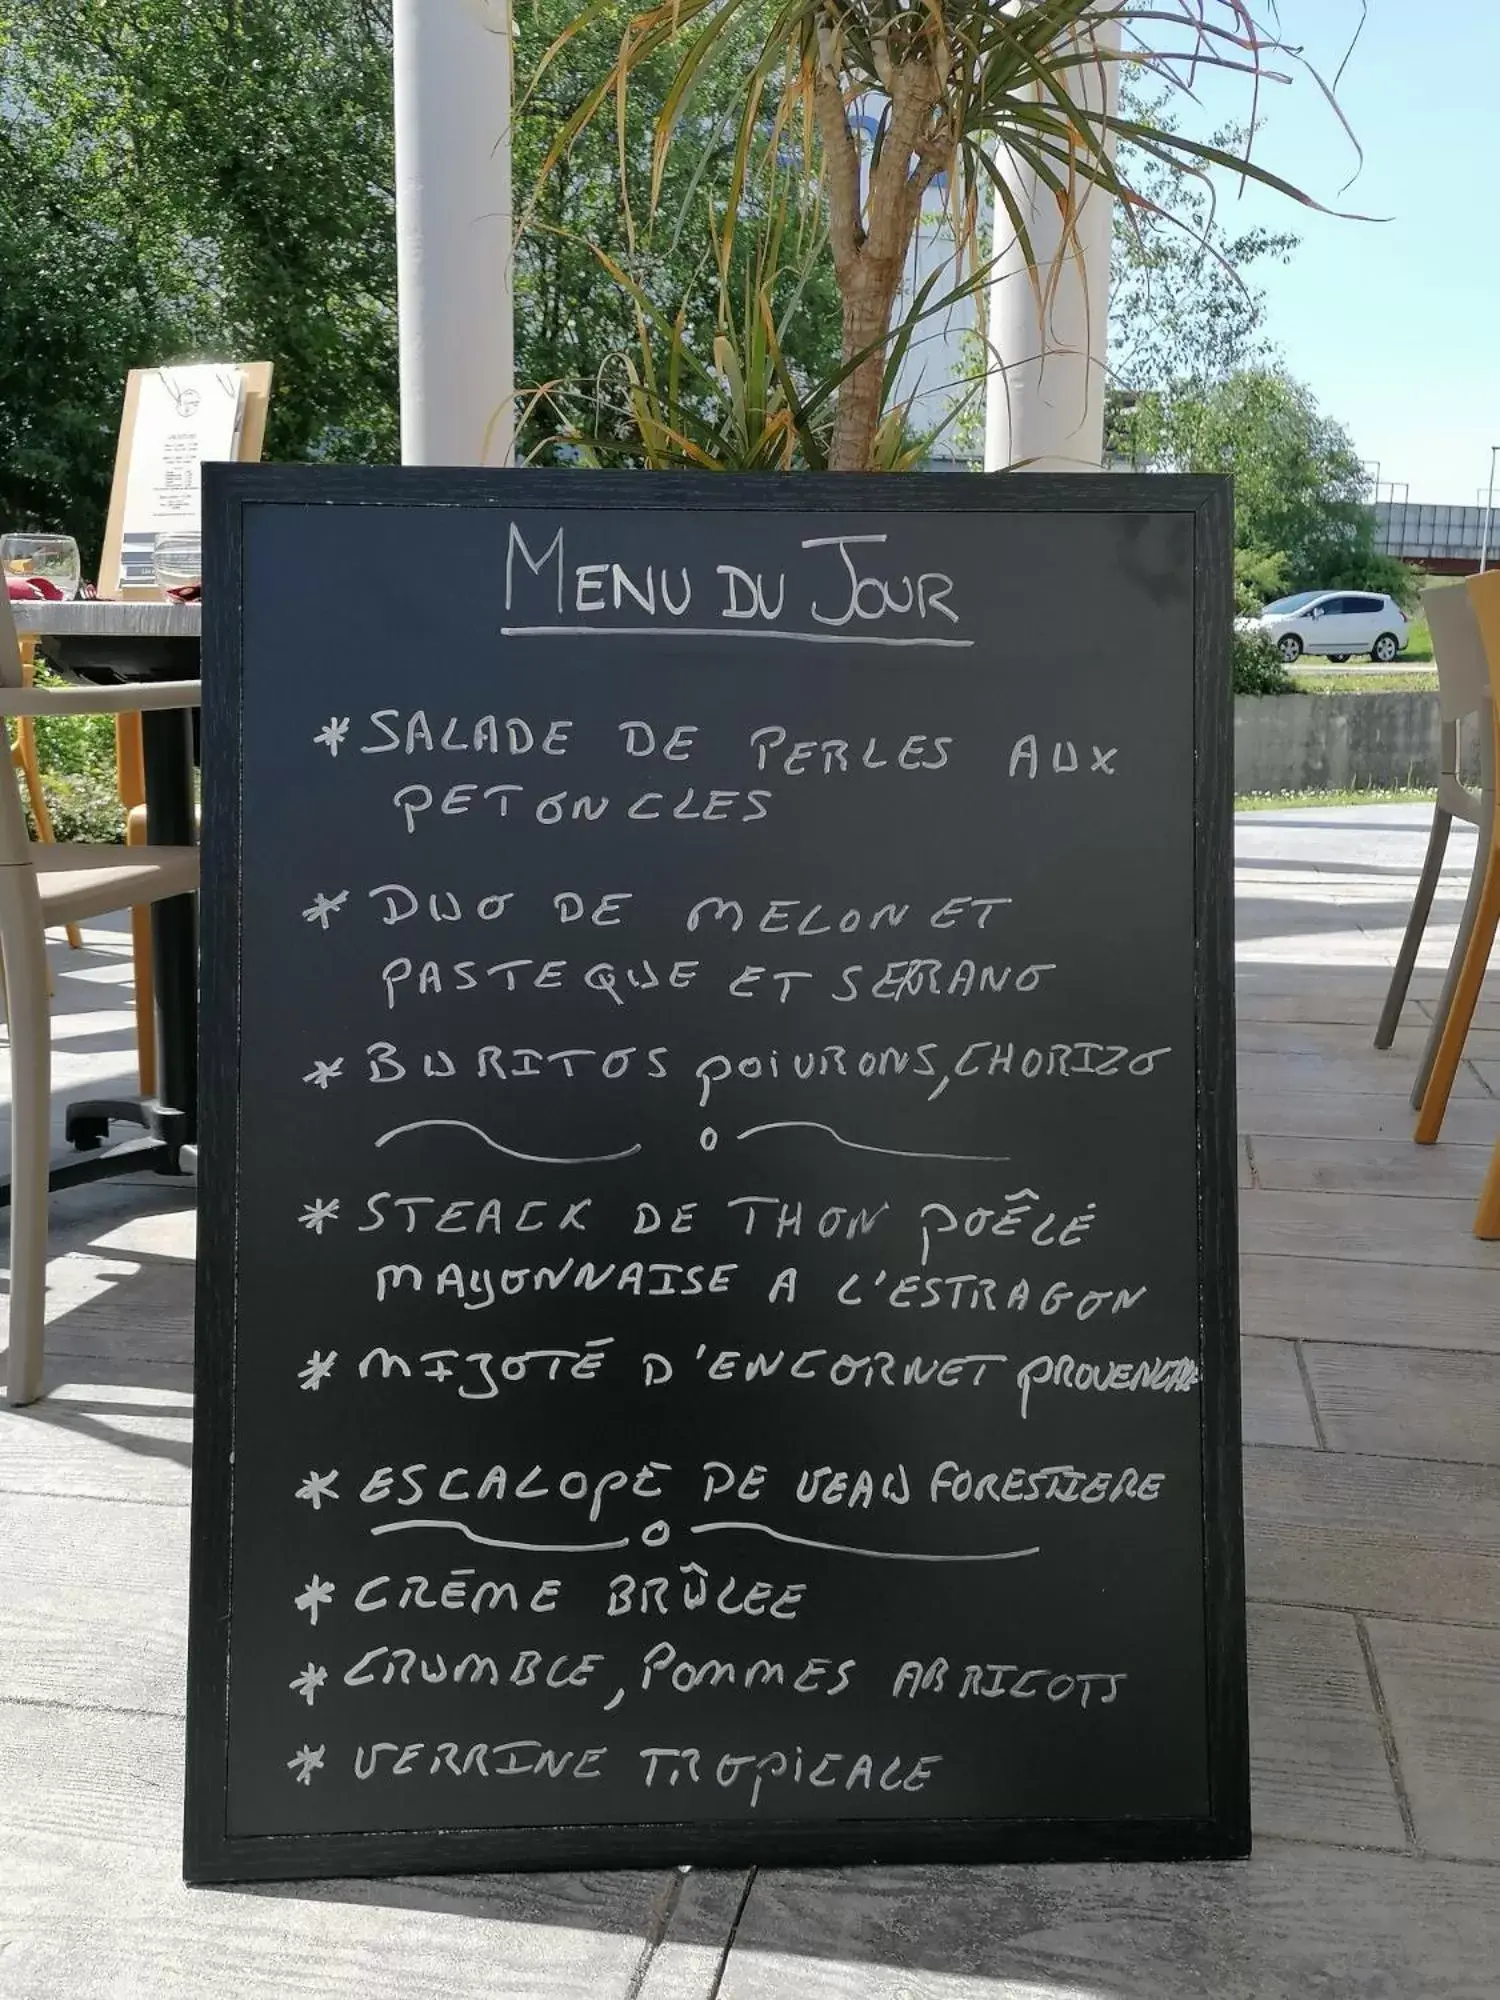 MENU DU JOUR
* SALADE DE PERLES AUX
PETONCLES
* DUO DE MELON ET
PASTEQUE ET SERRANO
* BURITOS POIVRONS, CHORIZO
* STEACK DE THON POÊLÉ
MAYONNAISE A L'ESTRAGON
* MIJOTÉ D'ENCORNET PROVENCALE
* ESCALOPE DE VEAU FORESTIERE
* CRÉME BRÛLEE
* CRUMBLE, POMMES ABRICOTS
* VERRINE TROPICALE